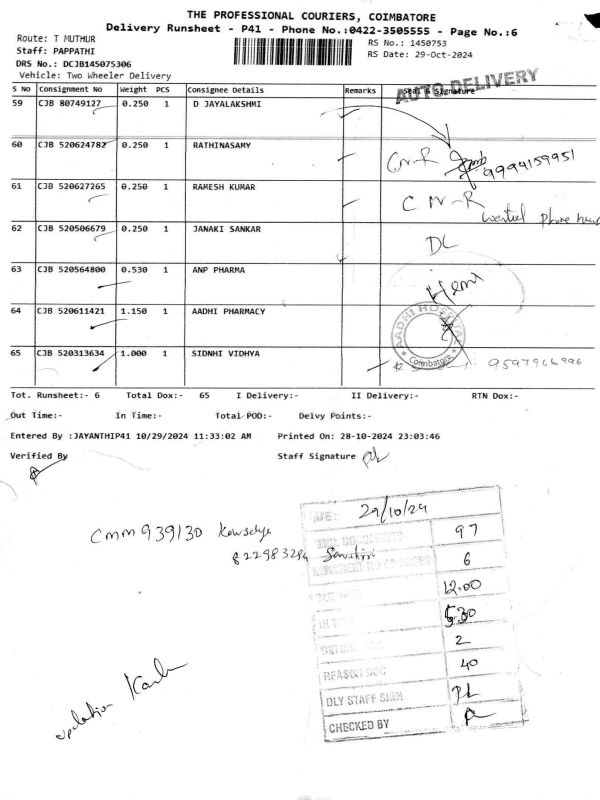 THE PROFESSIONAL COURIERS, COIMBATORE
Delivery Runsheet - P41 - Phone No.:0422-3505555 - Page No.:6
Route: T MUTHUR
RS No.: 1450753
Staff: PAPPATHI
RS Date: 29-Oct-2024
DRS No.: DCJB145075306
Vehicle: Two Wheeler Delivery
AUTO DELIVERY
S No Consignment No Weight PCS Consignee Details Remarks Seal & Signature
59 CJB 80749127 0.250 1 D JAYALAKSHMI
60 CJB 520624782 0.250 1 RATHINASAMY
9994159951
61 CJB 520627265 0.250 1 RAMESH KUMAR
C N-R
phone
62 CJB 520506679 0.250 1 JANAKI SANKAR
DL
63 CJB 520564800 0.530 1 ANP PHARMA
Hema
64 CJB 520611421 1.150 1 AADHI PHARMACY
AADHI HOSPITAL
* Coimbatore *
65 CJB 520313634 1.000 1 SIDNHI VIDHYA
Tot. Runsheet:- 6 Total Dox:- 65 I Delivery:- II Delivery:- RTN Dox:-
Out Time:- In Time:- Total POD:- Delvy Points:-
Entered By :JAYANTHIP41 10/29/2024 11:33:02 AM Printed On: 28-10-2024 23:03:46
Verified By Staff Signature
29/10/24
CMM 939130
97
6
12.00
5.30
2
REASON DOC 40
DLY STAFF SIGN
CHECKED BY